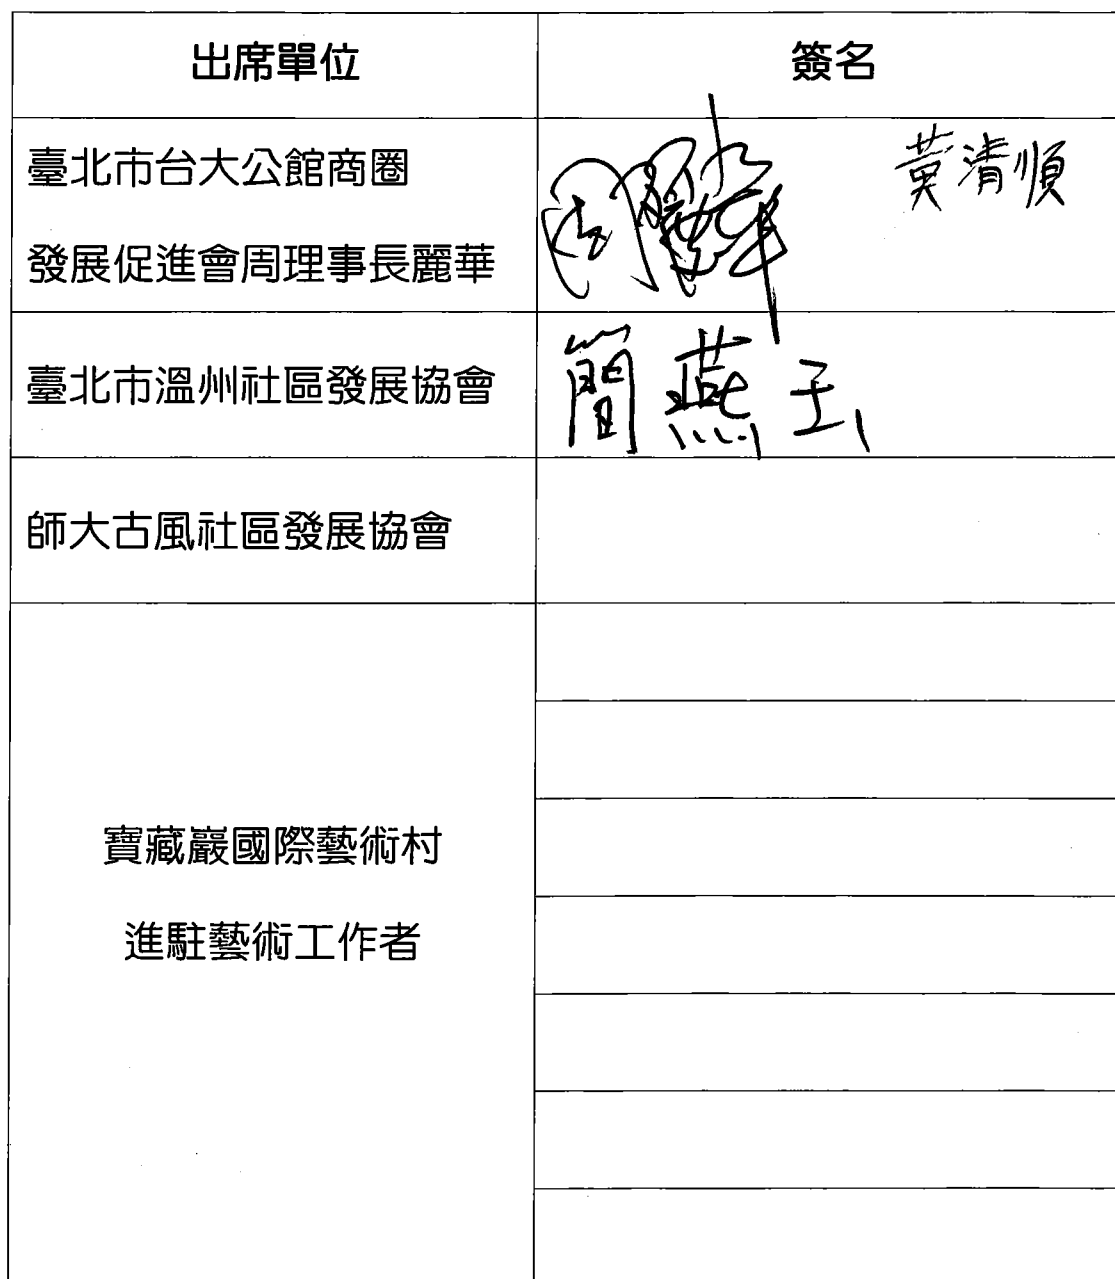 出席單位
簽名
臺北市台大公館商圈
發展促進會周理事長麗華
周麗華
黃清順
臺北市溫州社區發展協會
簡燕玉
師大古風社區發展協會
寶藏巖國際藝術村
進駐藝術工作者